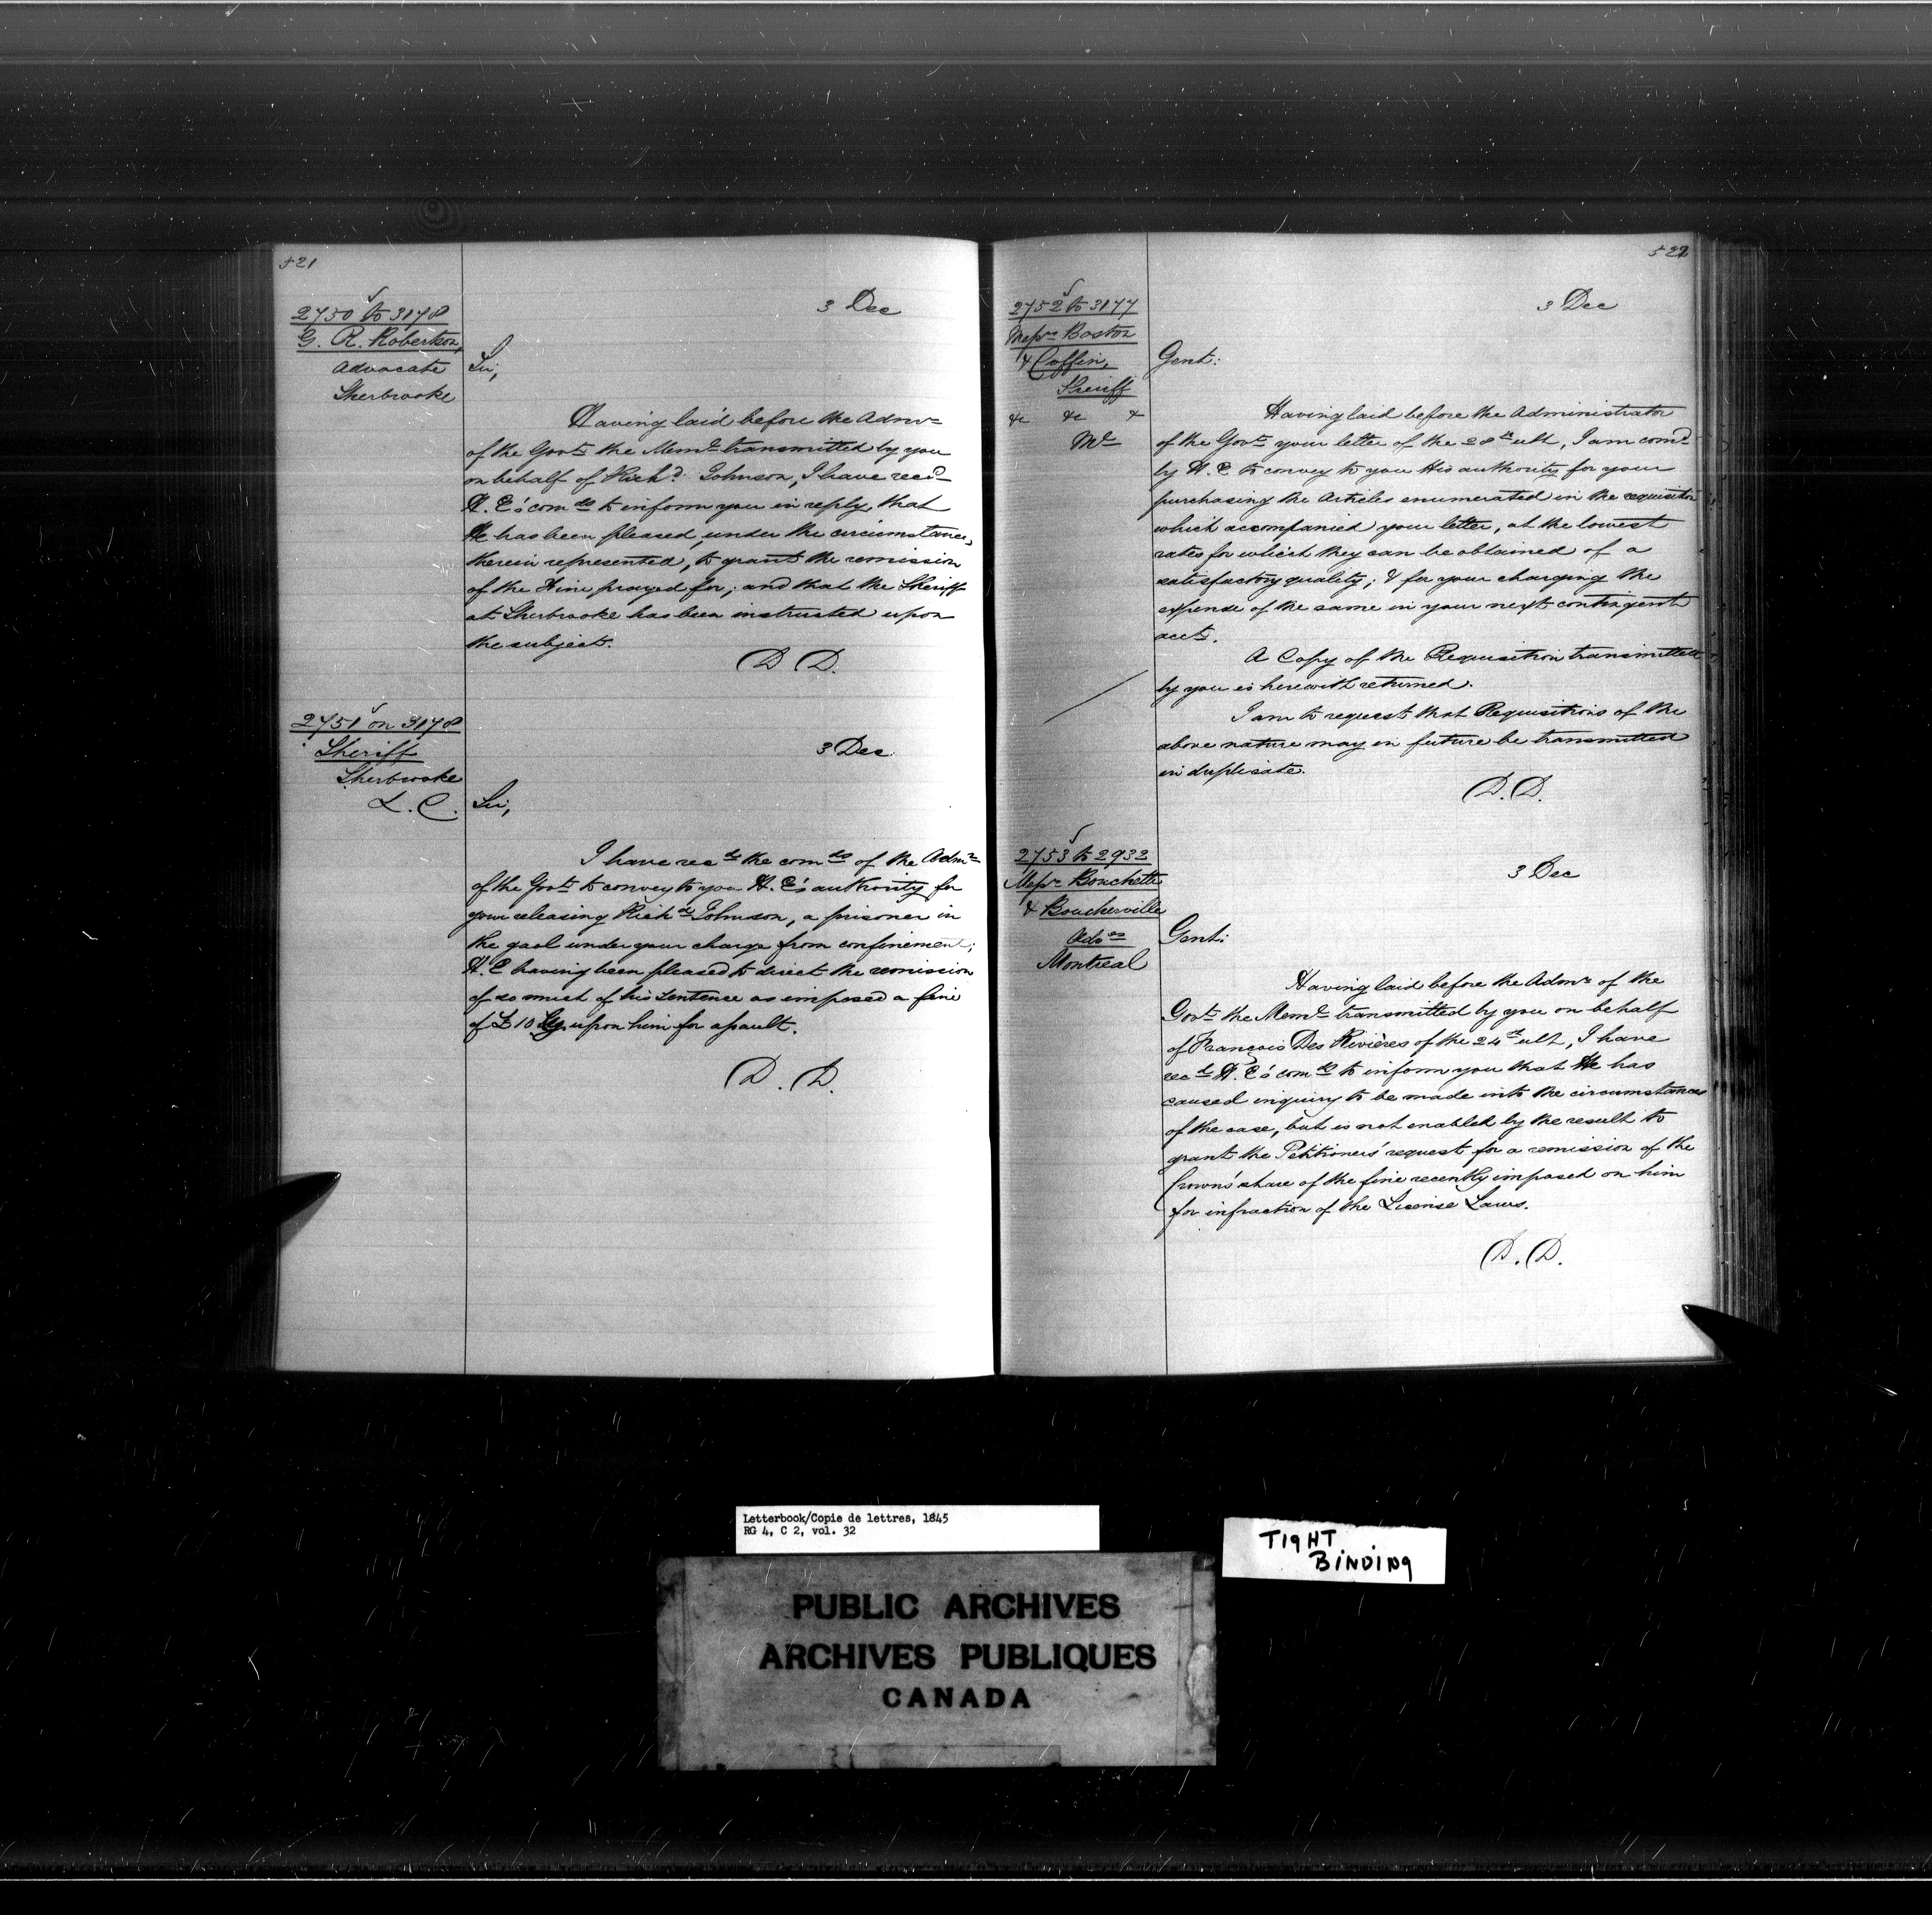 521
2750 to 3178
G. R. Robertson,
Advocate
Sherbrooke
3 Dec
Sir,
Having laid before the Admr
of the Govt the Meml transmitted by you
on behalf of Richd Johnson, I have recd
H. E's comds to inform you in reply, that
He has been pleased, under the circumstances
therein represented, to grant the remission
of the Fine prayed for; and that the Sheriff
at Sherbrooke has been instructed upon
the subject.
D D.
2751 on 3178
Sheriff
Sherbrooke
L. C.
3 Dec
Sir,
I have recd the comds of the Admr
of the Govt to convey to you H. E's authority for
your releasing Richd Johnson, a prisoner in
the gaol under your charge from confinement;
H. E having been pleased to direct the remission
of so much of his sentence as imposed a fine
of £10 upon him for assault.
D. D.
522
2752 to 3177
Messrs Boston
& Coffin,
Sheriff
&c &c &
Ml
3 Dec
Gent:
Having laid before the Administrator
of the Govt your letter of the 28th ult, I am comd
by H. E to convey to you His authority for your
purchasing the Articles enumerated in the requisition
which accompanied your letter, at the lowest
rates for which they can be obtained of a
satisfactory quality; & for your charging the
expense of the same in your next contingent
acct.
A Copy of the Requisition transmitted
by you is herewith returned.
I am to request that Requisitions of the
above nature may in future be transmitted
in duplicate.
D. D.
2753 to 2932
Messrs Bouchette
& Boucherville
Advos
Montreal
3 Dec
Gent:
Having laid before the Admr of the
Govt the Meml transmitted by you on behalf
of François Des Rivières of the 24th ult, I have
recd H. E's comds to inform you that He has
caused inquiry to be made into the circumstances
of the case, but is not enabled by the result to
grant the Petitioners' request for a remission of the
Crown's share of the fine recently imposed on him
for infraction of the License Laws.
D. D.
Letterbook/Copie de lettres, 1845
RG 4, C 2, vol. 32
TIGHT
BINDING
PUBLIC ARCHIVES
ARCHIVES PUBLIQUES
CANADA